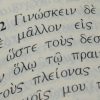 2 Γινώσκειν δὲ
μᾶλλον εἰς
ὥστε τοὺς δεσ
ὅλῳ τῷ πραι
τοὺς πλείονας
μου